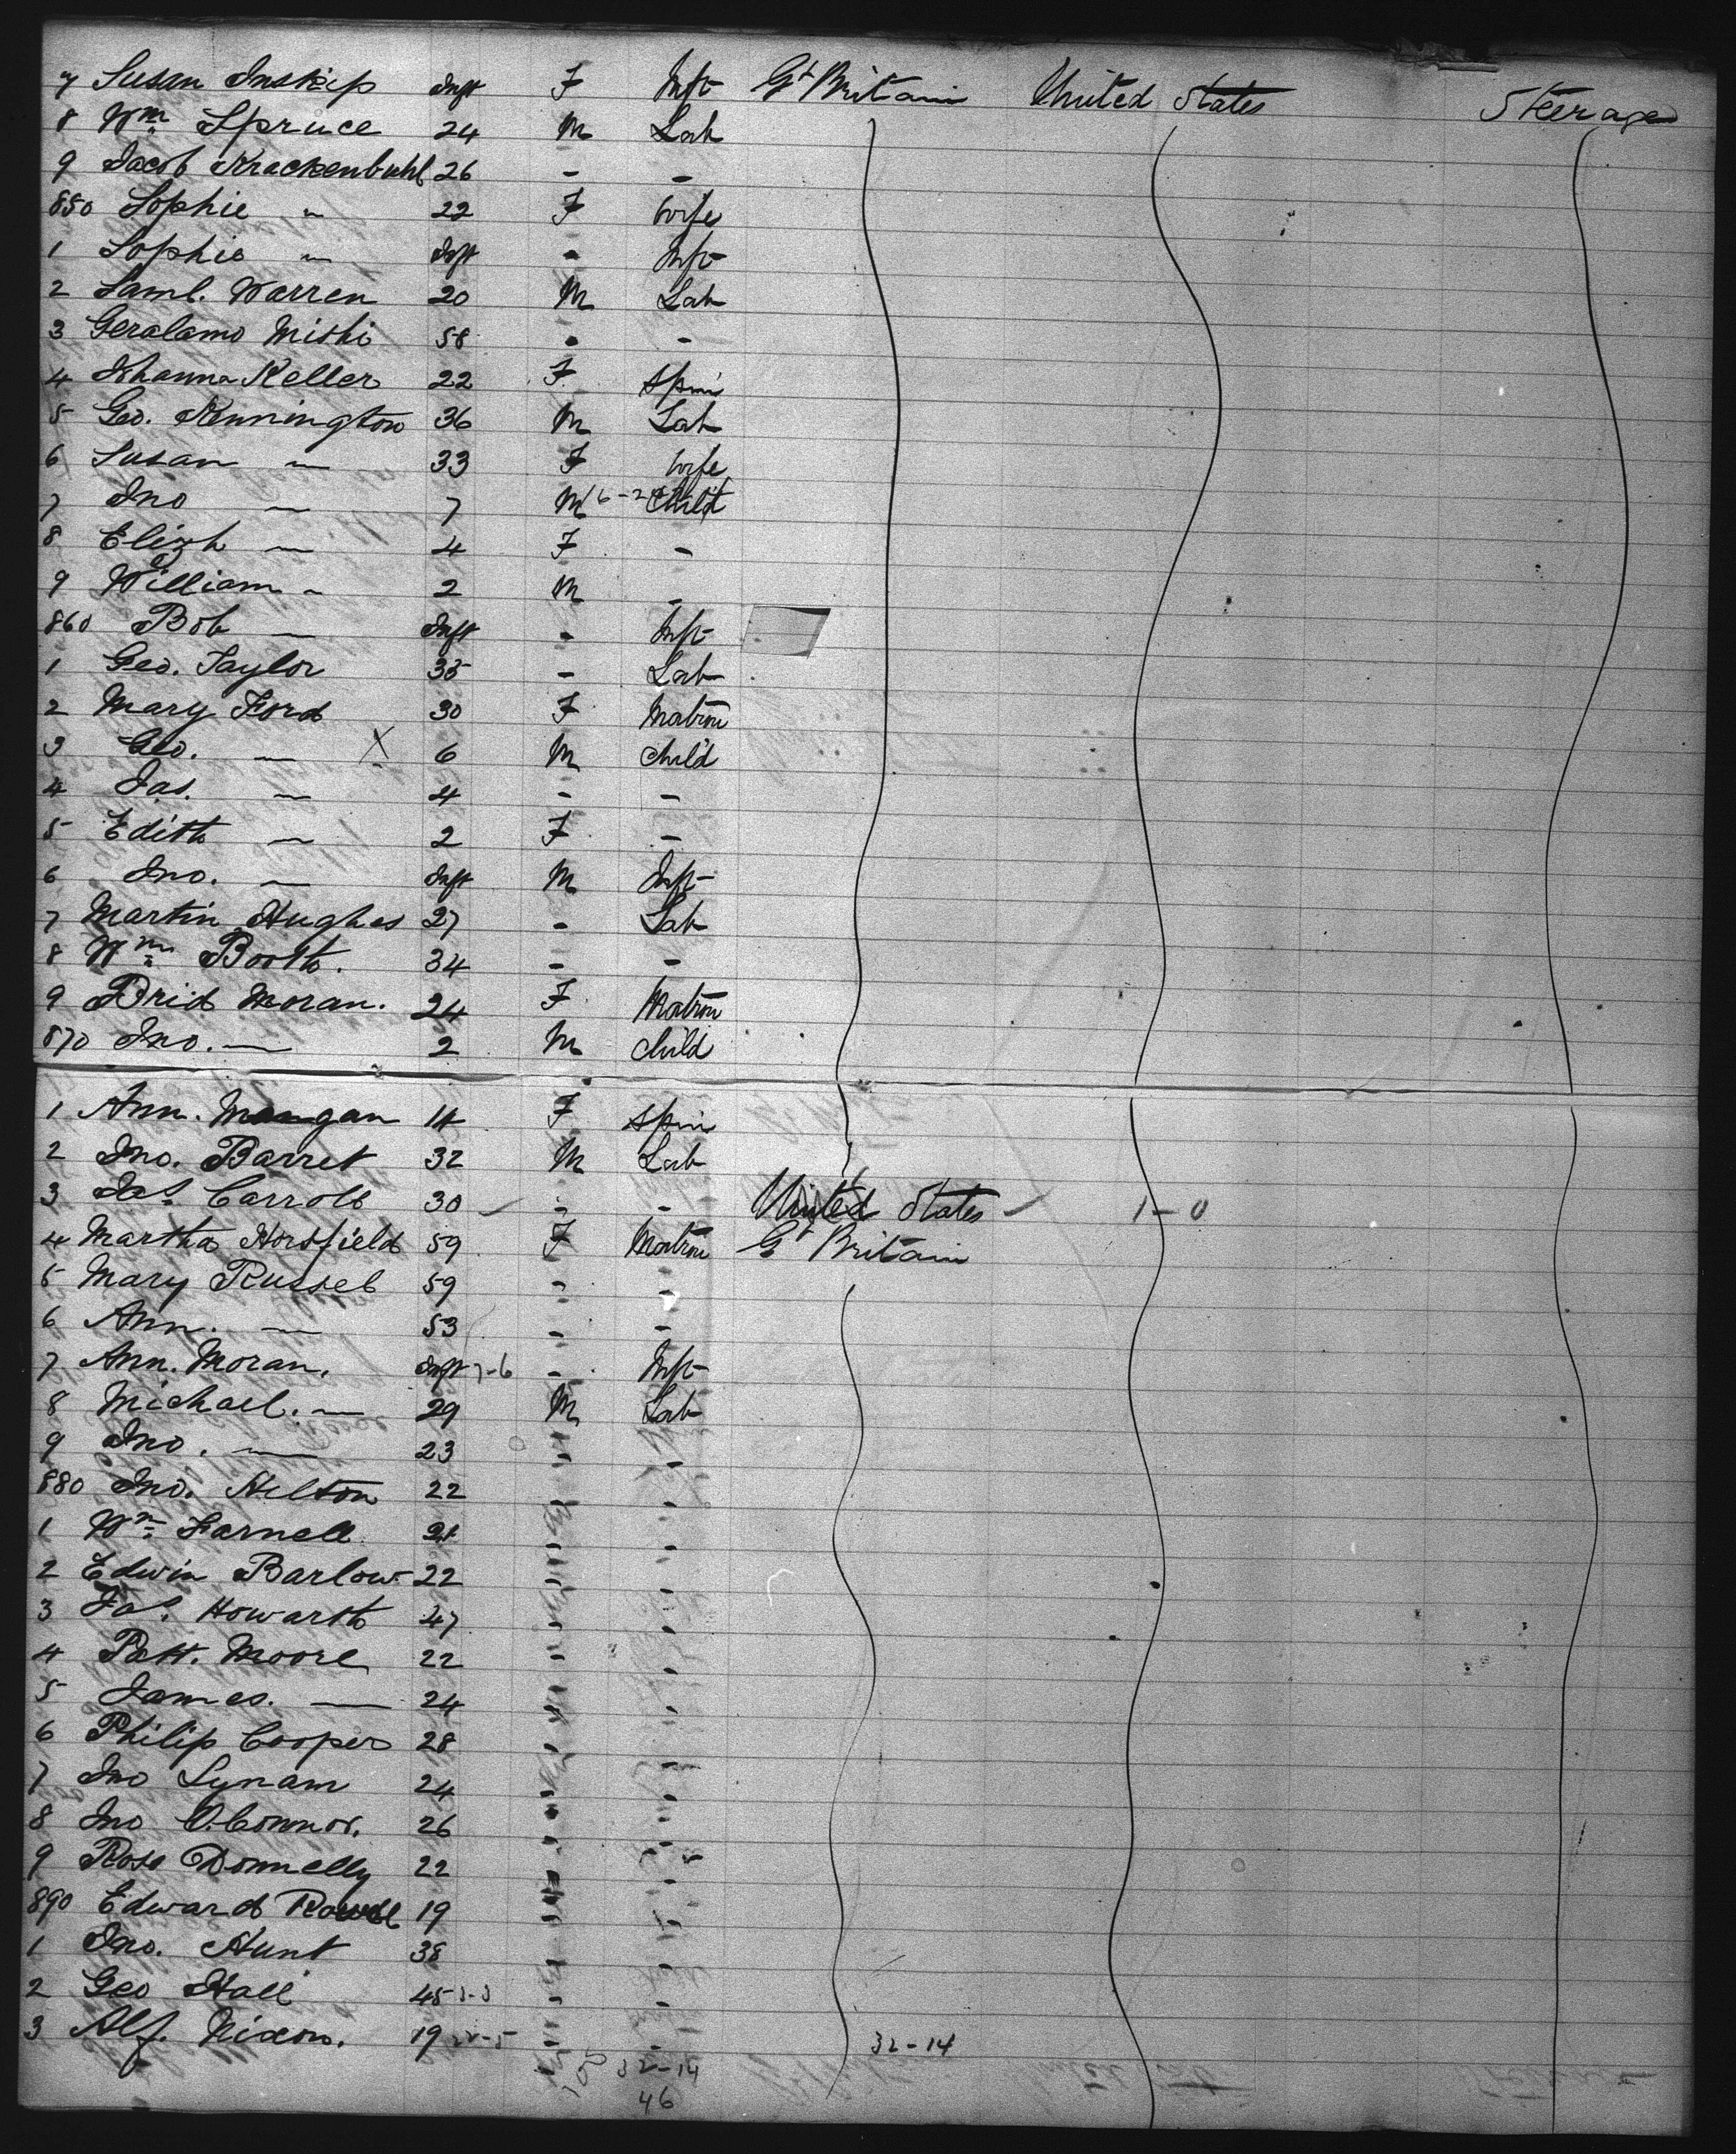 7 Susan Inskip Inft F Inft Gt Britain United States Steerage
8 Wm Spruce 24 M Lab
9 Jacob Krackenbuhl 26 - -
850 Sophie " 22 F Wife
1 Sophie " Inft - Inft
2 Saml. Warren 20 M Lab
3 Geralamo Mishi 58 - -
4 Johanna Keller 22 F Spin
5 Geo. Kennington 36 M Lab
6 Susan " 33 F Wife
7 Jno " 7 M Child
8 Elizh " 4 F -
9 William " 2 M -
860 Bob " Inft - Inft
1 Geo. Taylor 35 - Lab
2 Mary Ford 30 F Matron
3 Geo. " X 6 M Child
4 Jas. " 4 - -
5 Edith " 2 F -
6 Jno. " Inft M Inft
7 Martin Hughes 27 - Lab
8 Wm Booth. 34 - -
9 Brid Moran. 24 F Matron
870 Jno. " 2 M Child
1 Ann. Mangan 14 F Spin
2 Jno. Barret 32 M Lab
3 Jas. Carroll 30 - - United States 1-0
4 Martha Horsfield 59 F Matron Gt Britain
5 Mary Russel 59 - -
6 Ann. " 53 - -
7 Ann. Moran. Inft 7-6 - Inft
8 Michael. " 29 M Lab
9 Jno. " 23 - -
880 Jno. Hilton 22 - -
1 Wm Farnell 21 - -
2 Edwin Barlow 22 - -
3 Jas. Howarth 47 - -
4 Patt. Moore 22 - -
5 James. " 24 - -
6 Philip Cooper 28 - -
7 Jno Lynam 24 - -
8 Jno O'Connor. 26 - -
9 Rose Donnelly 22 - -
890 Edward Rowell 19 - -
1 Jno. Hunt 38 - -
2 Geo Hall 45 - -
3 Alf. Nixon. 19 - - 32-14
32-14
46